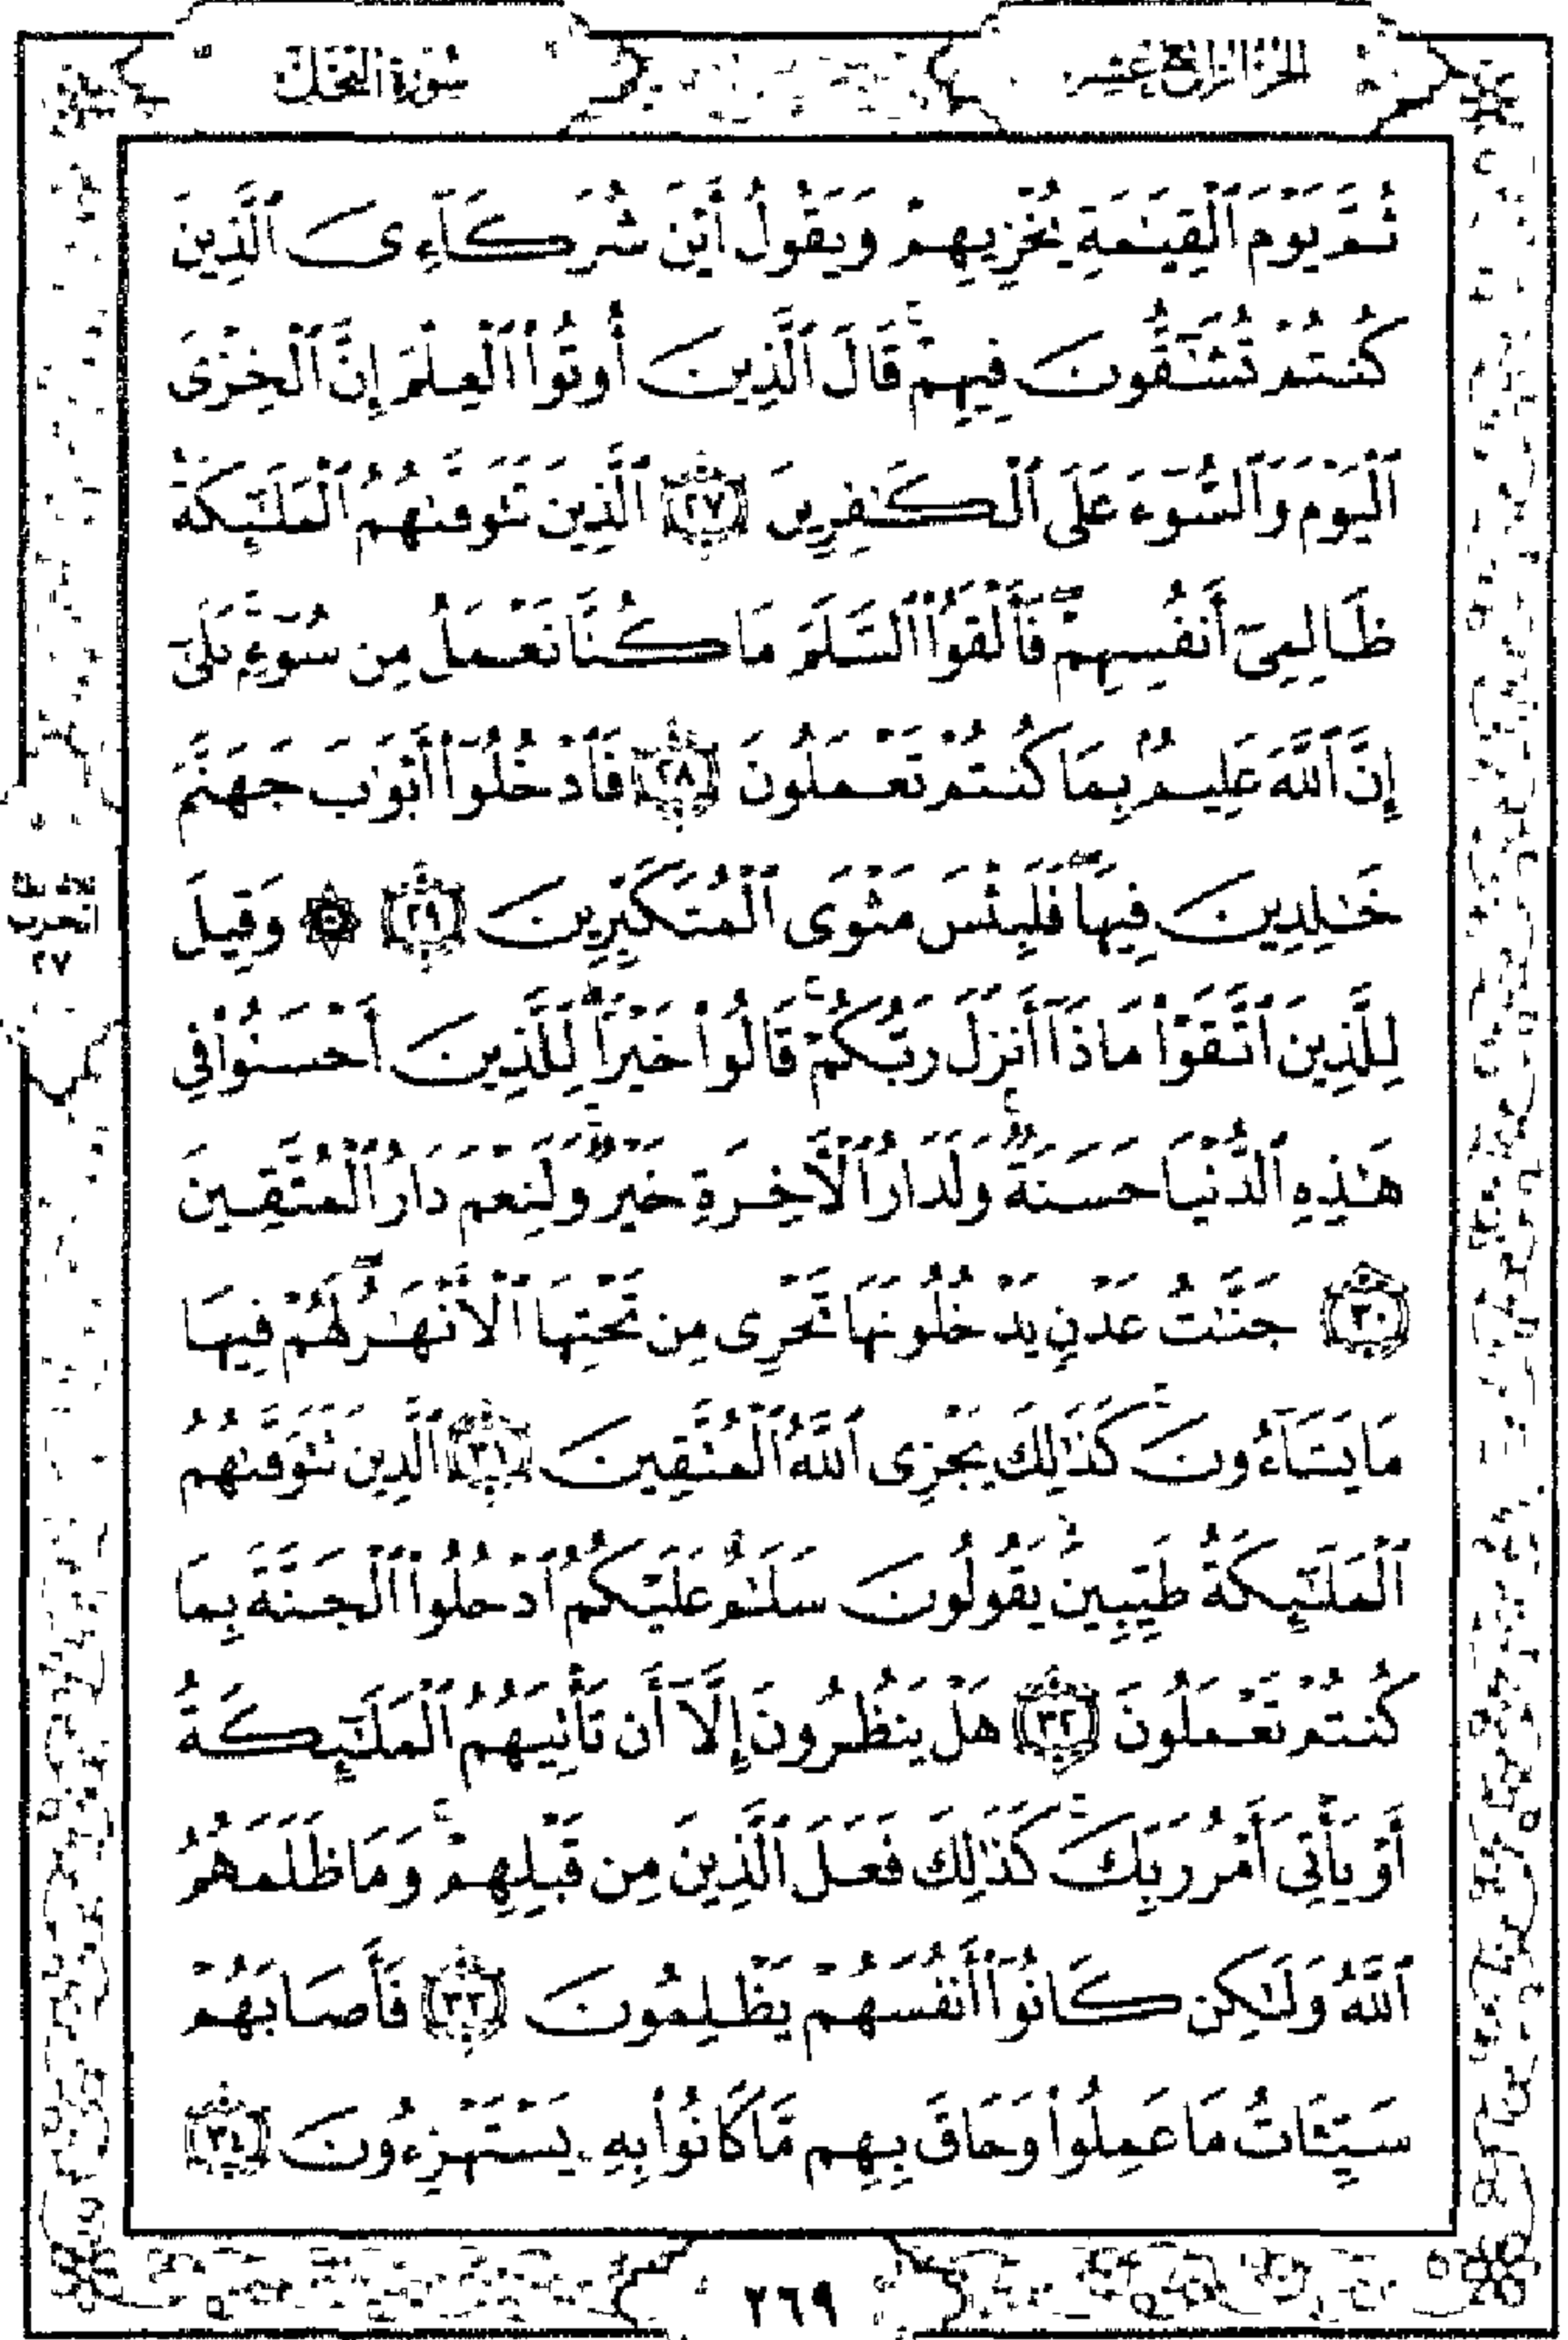 الجزء الرابع عشر
سورة النحل
ثُمَّ يَوْمَ ٱلْقِيَـٰمَةِ يُخْزِيهِمْ وَيَقُولُ أَيْنَ شُرَكَآءِىَ ٱلَّذِينَ
كُنتُمْ تُشَـٰٓقُّونَ فِيهِمْ ۚ قَالَ ٱلَّذِينَ أُوتُوا۟ ٱلْعِلْمَ إِنَّ ٱلْخِزْىَ
ٱلْيَوْمَ وَٱلسُّوٓءَ عَلَى ٱلْكَـٰفِرِينَ ٢٧ ٱلَّذِينَ تَتَوَفَّىٰهُمُ ٱلْمَلَـٰٓئِكَةُ
ظَالِمِىٓ أَنفُسِهِمْ ۖ فَأَلْقَوُا۟ ٱلسَّلَمَ مَا كُنَّا نَعْمَلُ مِن سُوٓءٍۭ ۚ بَلَىٰٓ
إِنَّ ٱللَّهَ عَلِيمٌۢ بِمَا كُنتُمْ تَعْمَلُونَ ٢٨ فَٱدْخُلُوٓا۟ أَبْوَٰبَ جَهَنَّمَ
خَـٰلِدِينَ فِيهَا ۖ فَلَبِئْسَ مَثْوَى ٱلْمُتَكَبِّرِينَ ٢٩ ۞ وَقِيلَ
لِلَّذِينَ ٱتَّقَوْا۟ مَاذَآ أَنزَلَ رَبُّكُمْ ۚ قَالُوا۟ خَيْرًا ۗ لِّلَّذِينَ أَحْسَنُوا۟ فِى
هَـٰذِهِ ٱلدُّنْيَا حَسَنَةٌ ۚ وَلَدَارُ ٱلْـَٔاخِرَةِ خَيْرٌ ۚ وَلَنِعْمَ دَارُ ٱلْمُتَّقِينَ
٣٠ جَنَّـٰتُ عَدْنٍ يَدْخُلُونَهَا تَجْرِى مِن تَحْتِهَا ٱلْأَنْهَـٰرُ ۖ لَهُمْ فِيهَا
مَا يَشَآءُونَ ۚ كَذَٰلِكَ يَجْزِى ٱللَّهُ ٱلْمُتَّقِينَ ٣١ ٱلَّذِينَ تَتَوَفَّىٰهُمُ
ٱلْمَلَـٰٓئِكَةُ طَيِّبِينَ ۙ يَقُولُونَ سَلَـٰمٌ عَلَيْكُمُ ٱدْخُلُوا۟ ٱلْجَنَّةَ بِمَا
كُنتُمْ تَعْمَلُونَ ٣٢ هَلْ يَنظُرُونَ إِلَّآ أَن تَأْتِيَهُمُ ٱلْمَلَـٰٓئِكَةُ
أَوْ يَأْتِىَ أَمْرُ رَبِّكَ ۚ كَذَٰلِكَ فَعَلَ ٱلَّذِينَ مِن قَبْلِهِمْ ۚ وَمَا ظَلَمَهُمُ
ٱللَّهُ وَلَـٰكِن كَانُوٓا۟ أَنفُسَهُمْ يَظْلِمُونَ ٣٣ فَأَصَابَهُمْ
سَيِّـَٔاتُ مَا عَمِلُوا۟ وَحَاقَ بِهِم مَّا كَانُوا۟ بِهِۦ يَسْتَهْزِءُونَ ٣٤
الحزب
٢٧
٢٦٩